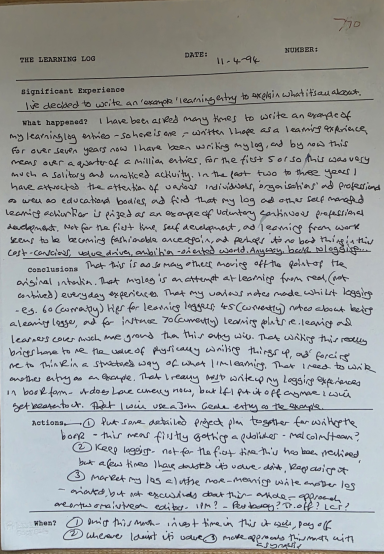 770
THE LEARNING LOG DATE: 11-4-94 NUMBER:
Significant Experience
I've decided to write an 'example' learning entry to explain what it's all about.
What happened? I have been asked many times to write an example of
my learning log entries - so here is one - written I hope as a learning experience.
For over seven years now I have been writing my log, and by now this
means over a quarter of a million entries. For the first 5 or so this was very
much a solitary and unnoticed activity. In the last two to three years I
have attracted the attention of various individuals, organisations and professional
as well as educational bodies, and find that my log and other self managed
learning activities is prized as an example of voluntary continuous professional
development. Not for the first time, self development, and learning from work
seems to be becoming fashionable once again, and perhaps it's no bad thing in this
cost-conscious, value driven, ambition-oriented world. Anyway, back to logging...
Conclusions That this is as so many others moving off the point of the
original intention. That my log is an attempt at learning from real, (not
contrived) everyday experiences. That my various notes made whilst logging
- e.g. 60 (currently) tips for learning loggers, 45 (currently) notes about being
a learning logger, and for instance 70 (currently) learning points re. learning and
learners cover much more ground than this entry will. That writing this really
brings home to me the value of physically writing things up, and forcing
me to think in a structured way of what I'm learning. That I need to write
another entry as an example. That I really must write up my logging experiences
in book form - it does have currency now, but if I put it off anymore I will
get beaten to it. That I will use a John entry as the example.
Actions (1) Put some detailed project plan together for writing the
book - this means firstly getting a publisher - Malcolm
(2) Keep logging - not for the first time this has been reaffirmed,
but a few times I have doubted its value - don't. Keep doing it
(3) Market my log a little more - meaning write another log
- oriented, but not exclusively about this - article - approach
mainstream editor - IPM?
When? (1) During this month - invest time in this it will pay off
(2) Whenever I doubt its value (3) more approaches this month with